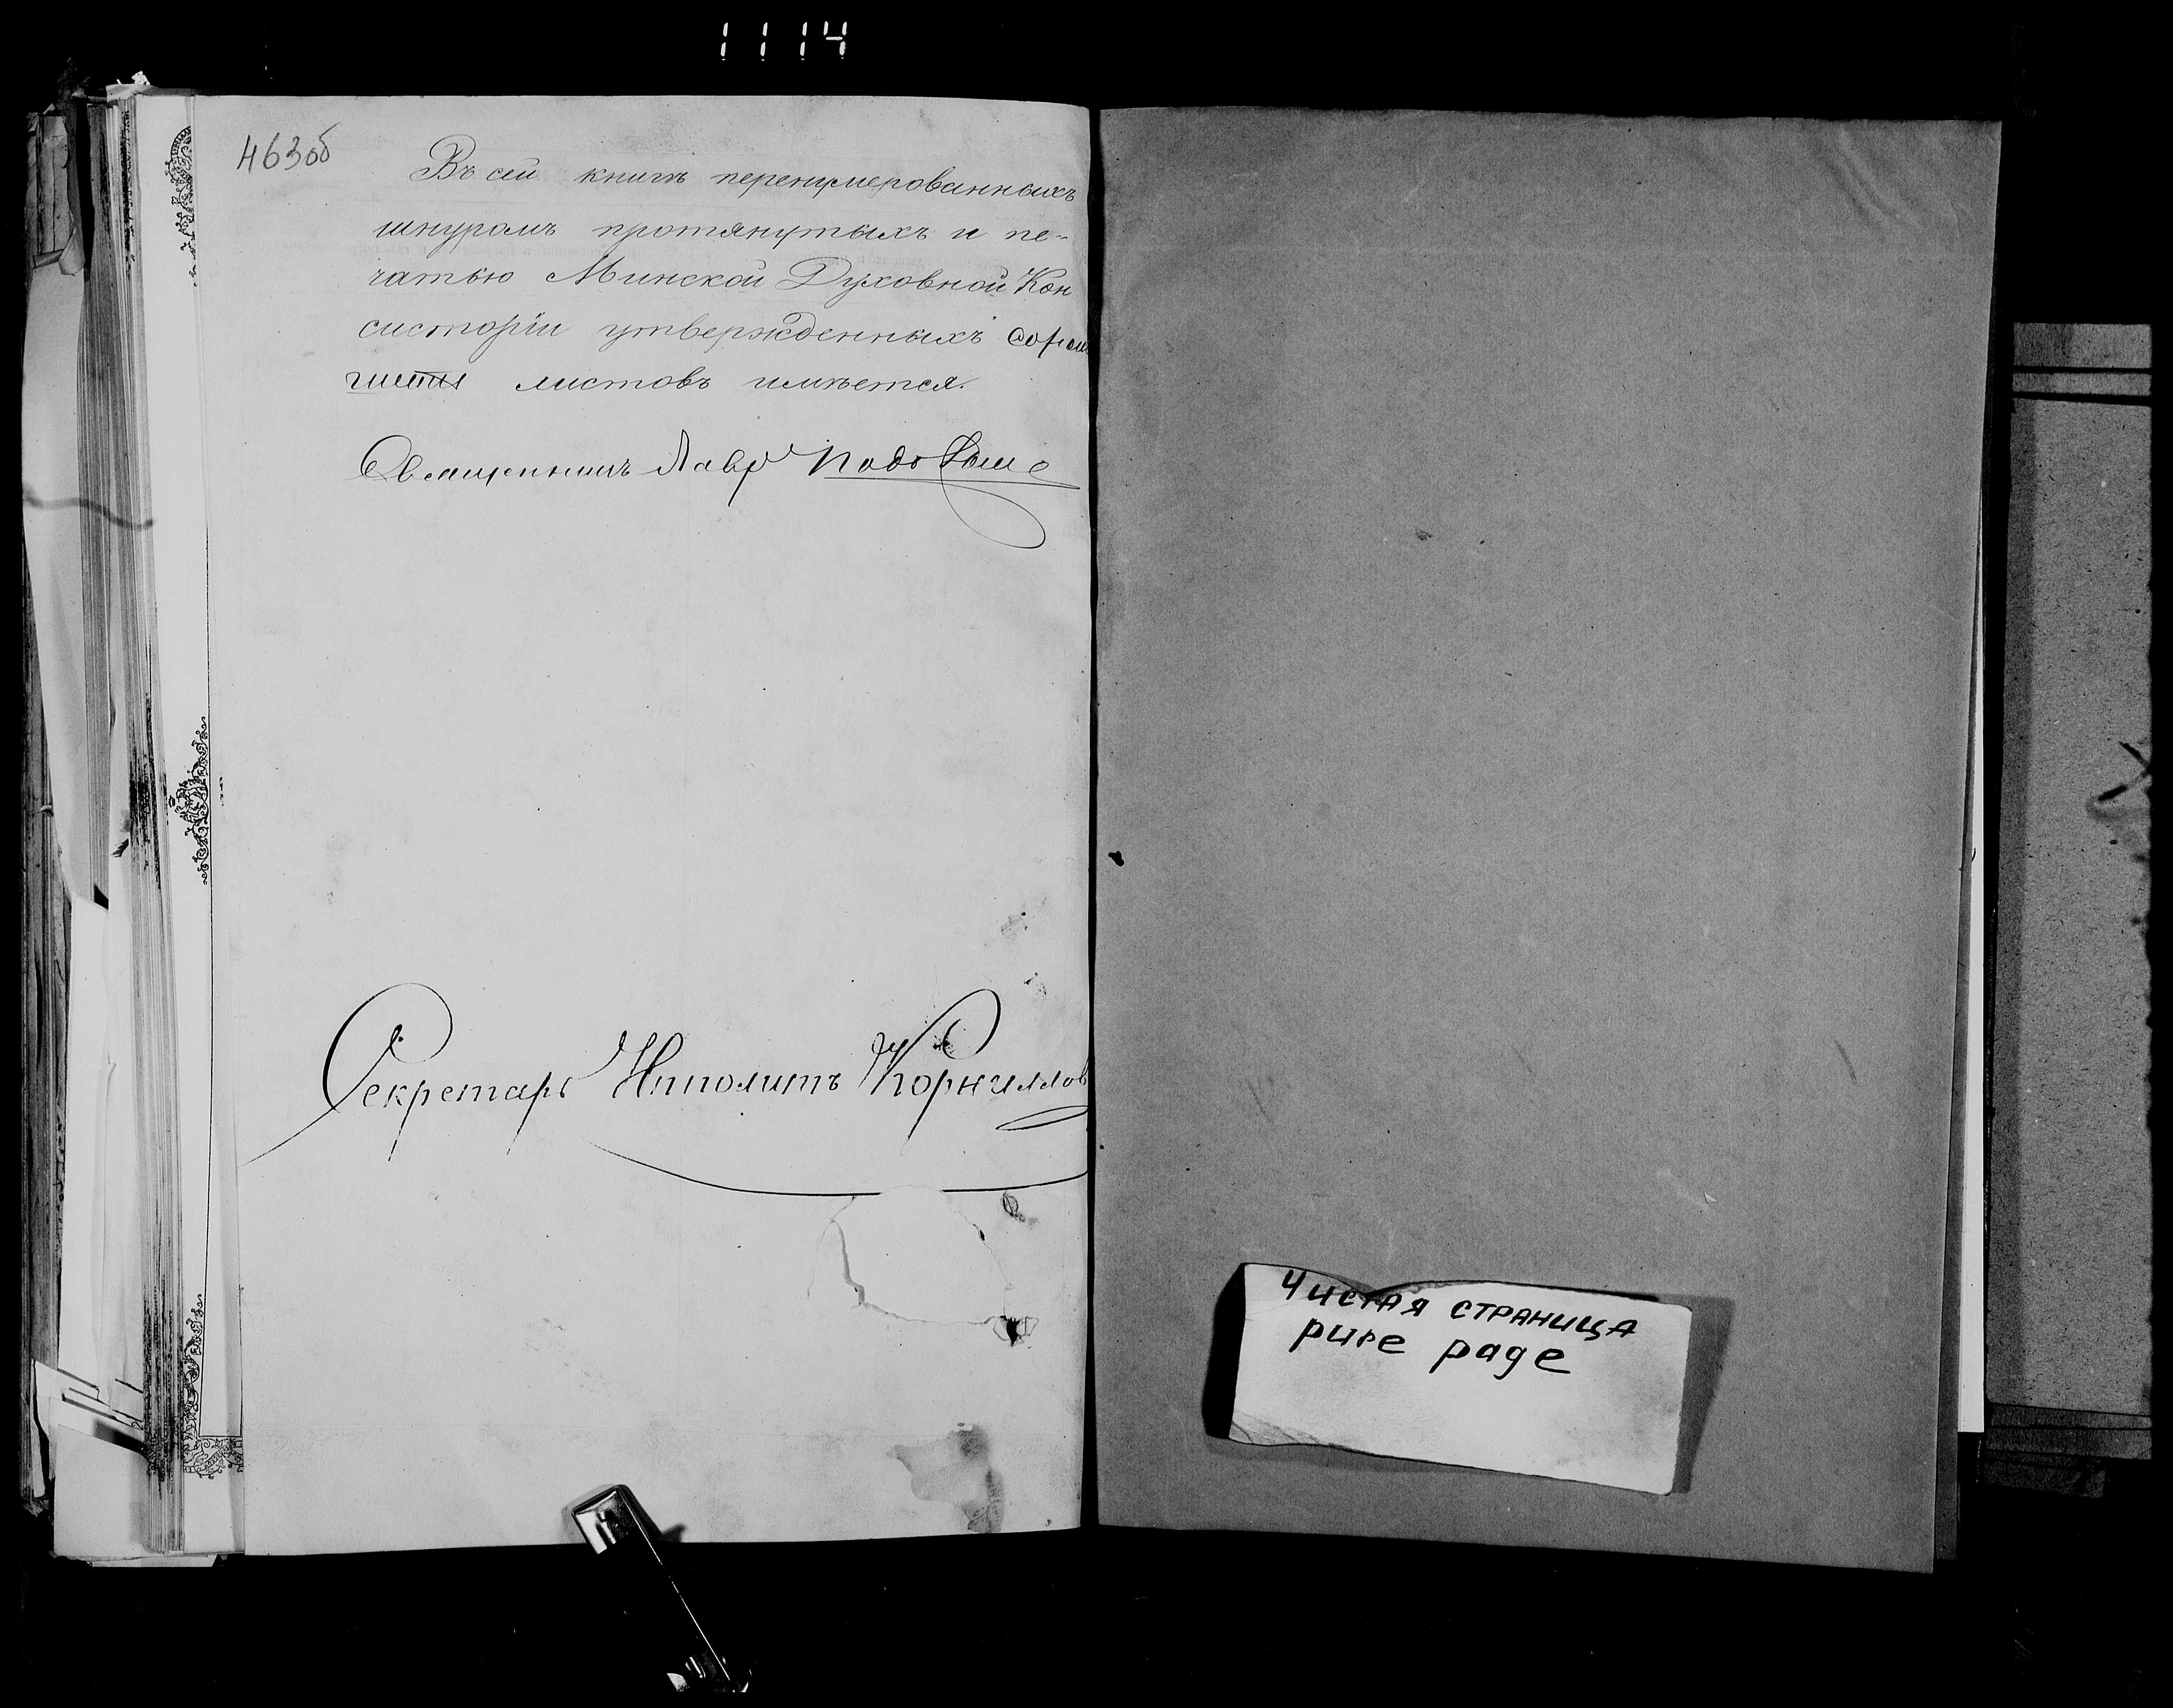 1114
463об
Въ сей книгѣ перенумерованныхъ
шнуромъ протянутыхъ и пе-
чатью Минской Духовной Кон
систоріи утвержденныхъ
листовъ имѣется.
Священникъ Лавр
Секретарь Ипполитъ Корниллов
Чистая страница
pure page